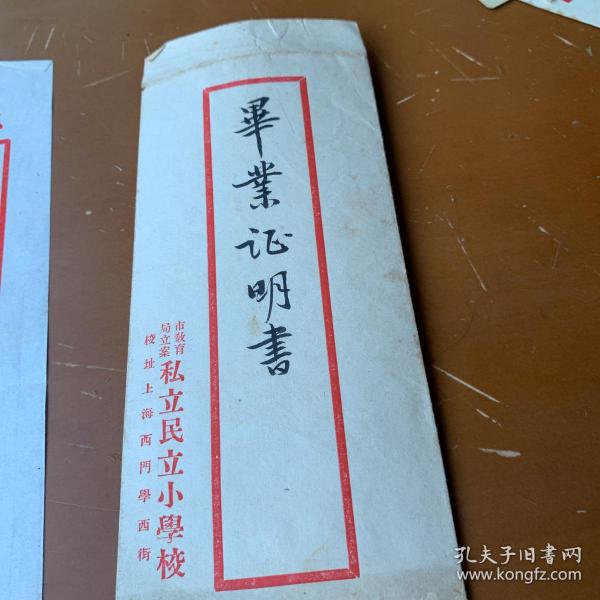 畢業证明書
市教育
局立案
私立民立小學校
校址上海西門學西街
孔夫子旧书网
www.kongfz.com